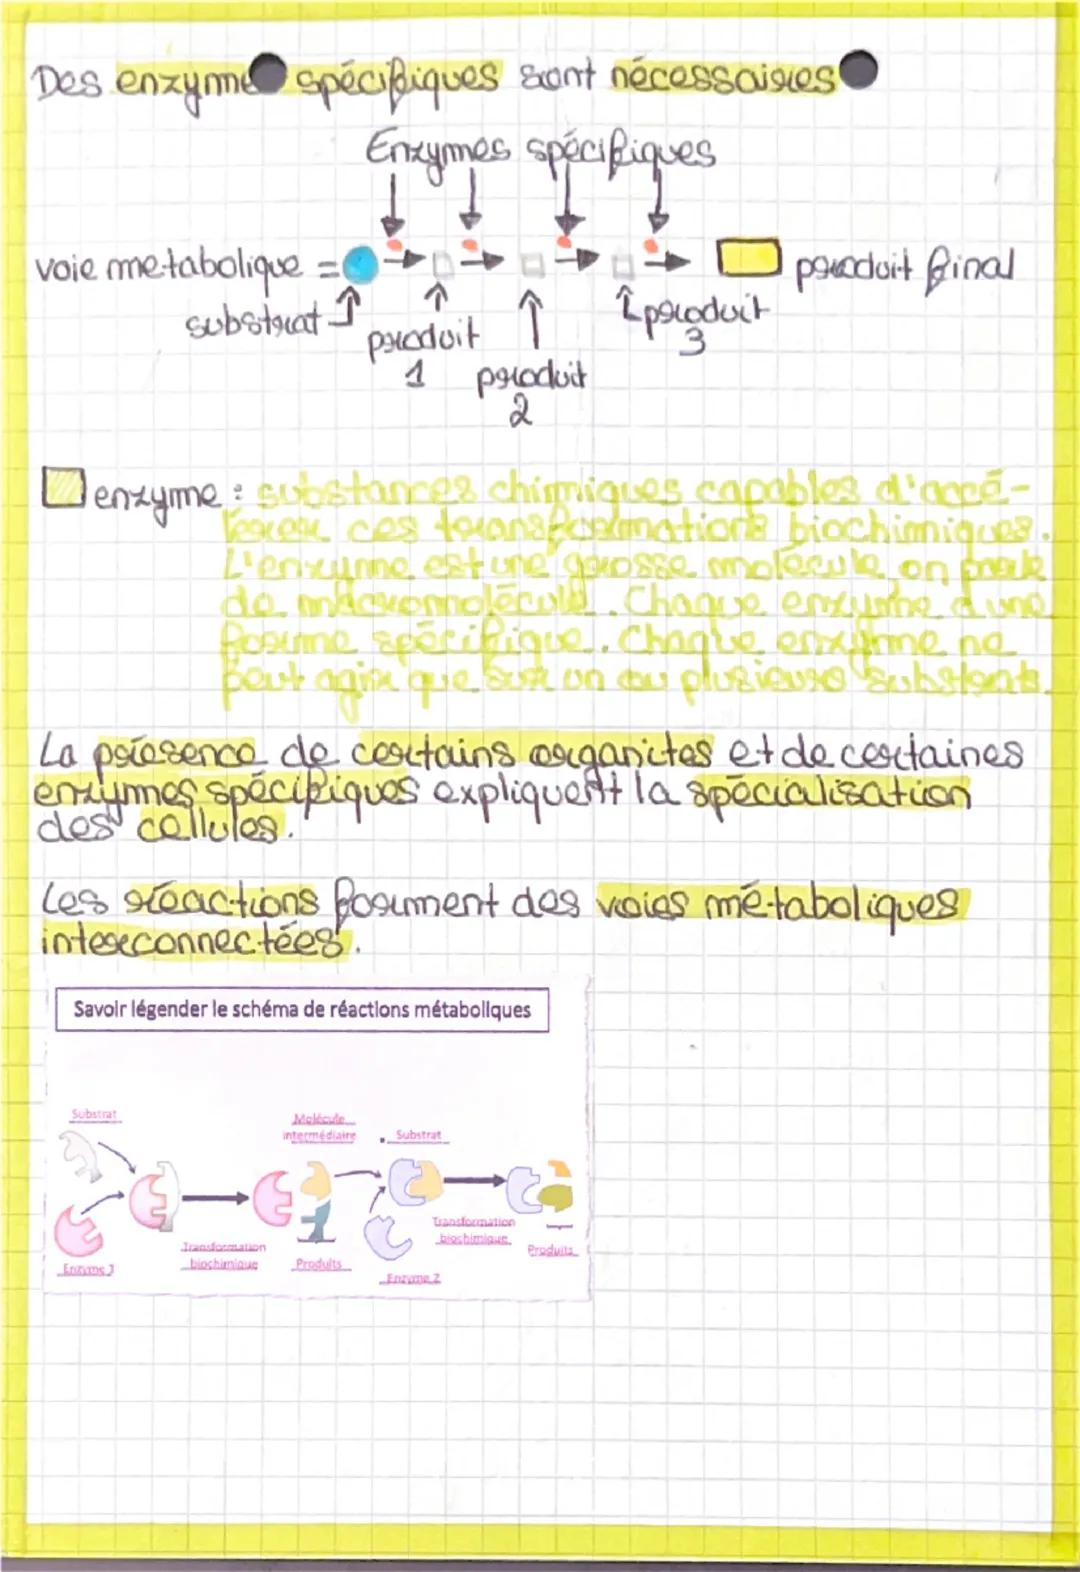 Des enzyme spécifiques sont nécessaires
Enzymes spécifiques
voie metabolique =
produit final
substrat
produit
1
produit
2
produit
3
enzyme : substances chimiques capables d'accé-
lérer ces transformations biochimiques.
L'enzyme est une grosse molécule, on parle
de macromolécule. Chaque enzyme a une
forme spécifique. Chaque enzyme ne
peut agir que sur un ou plusieurs substrats.
La présence de certains organites et de certaines
enzymes spécifiques expliquent la spécialisation
des cellules.
Les réactions forment des voies métaboliques
interconnectées.
Savoir légender le schéma de réactions métaboliques
Substrat
Molécule
intermédiaire
Substrat
Transformation
biochimique
Transformation
biochimique
Produits
Produits
Enzyme 1
Enzyme 2